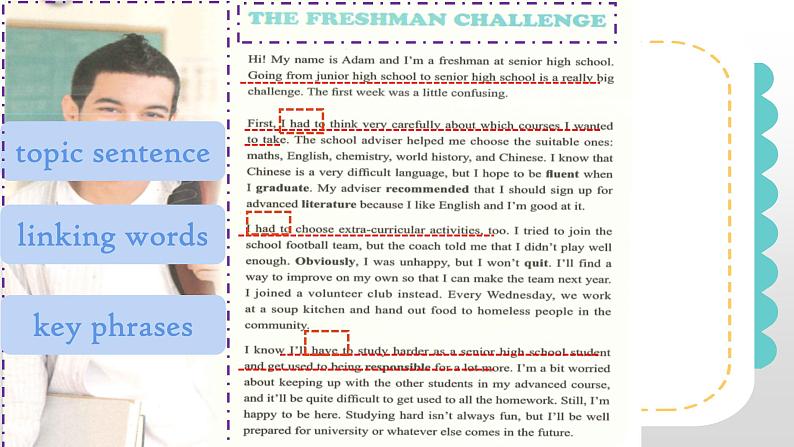 THE FRESHMAN CHALLENGE
topic sentence
linking words
key phrases
Hi! My name is Adam and I'm a freshman at senior high school.
Going from junior high school to senior high school is a really big
challenge. The first week was a little confusing.
First, I had to think very carefully about which courses I wanted
to take. The school adviser helped me choose the suitable ones:
maths, English, chemistry, world history, and Chinese. I know that
Chinese is a very difficult language, but I hope to be fluent when
I graduate. My adviser recommended that I should sign up for
advanced literature because I like English and I'm good at it.
I had to choose extra-curricular activities, too. I tried to join the
school football team, but the coach told me that I didn't play well
enough. Obviously, I was unhappy, but I won't quit. I'll find a
way to improve on my own so that I can make the team next year.
I joined a volunteer club instead. Every Wednesday, we work
at a soup kitchen and hand out food to homeless people in the
community.
I know I'll have to study harder as a senior high school student
and get used to being responsible for a lot more. I'm a bit worried
about keeping up with the other students in my advanced course,
and it'll be quite difficult to get used to all the homework. Still, I'm
happy to be here. Studying hard isn't always fun, but I'll be well
prepared for university or whatever else comes in the future.